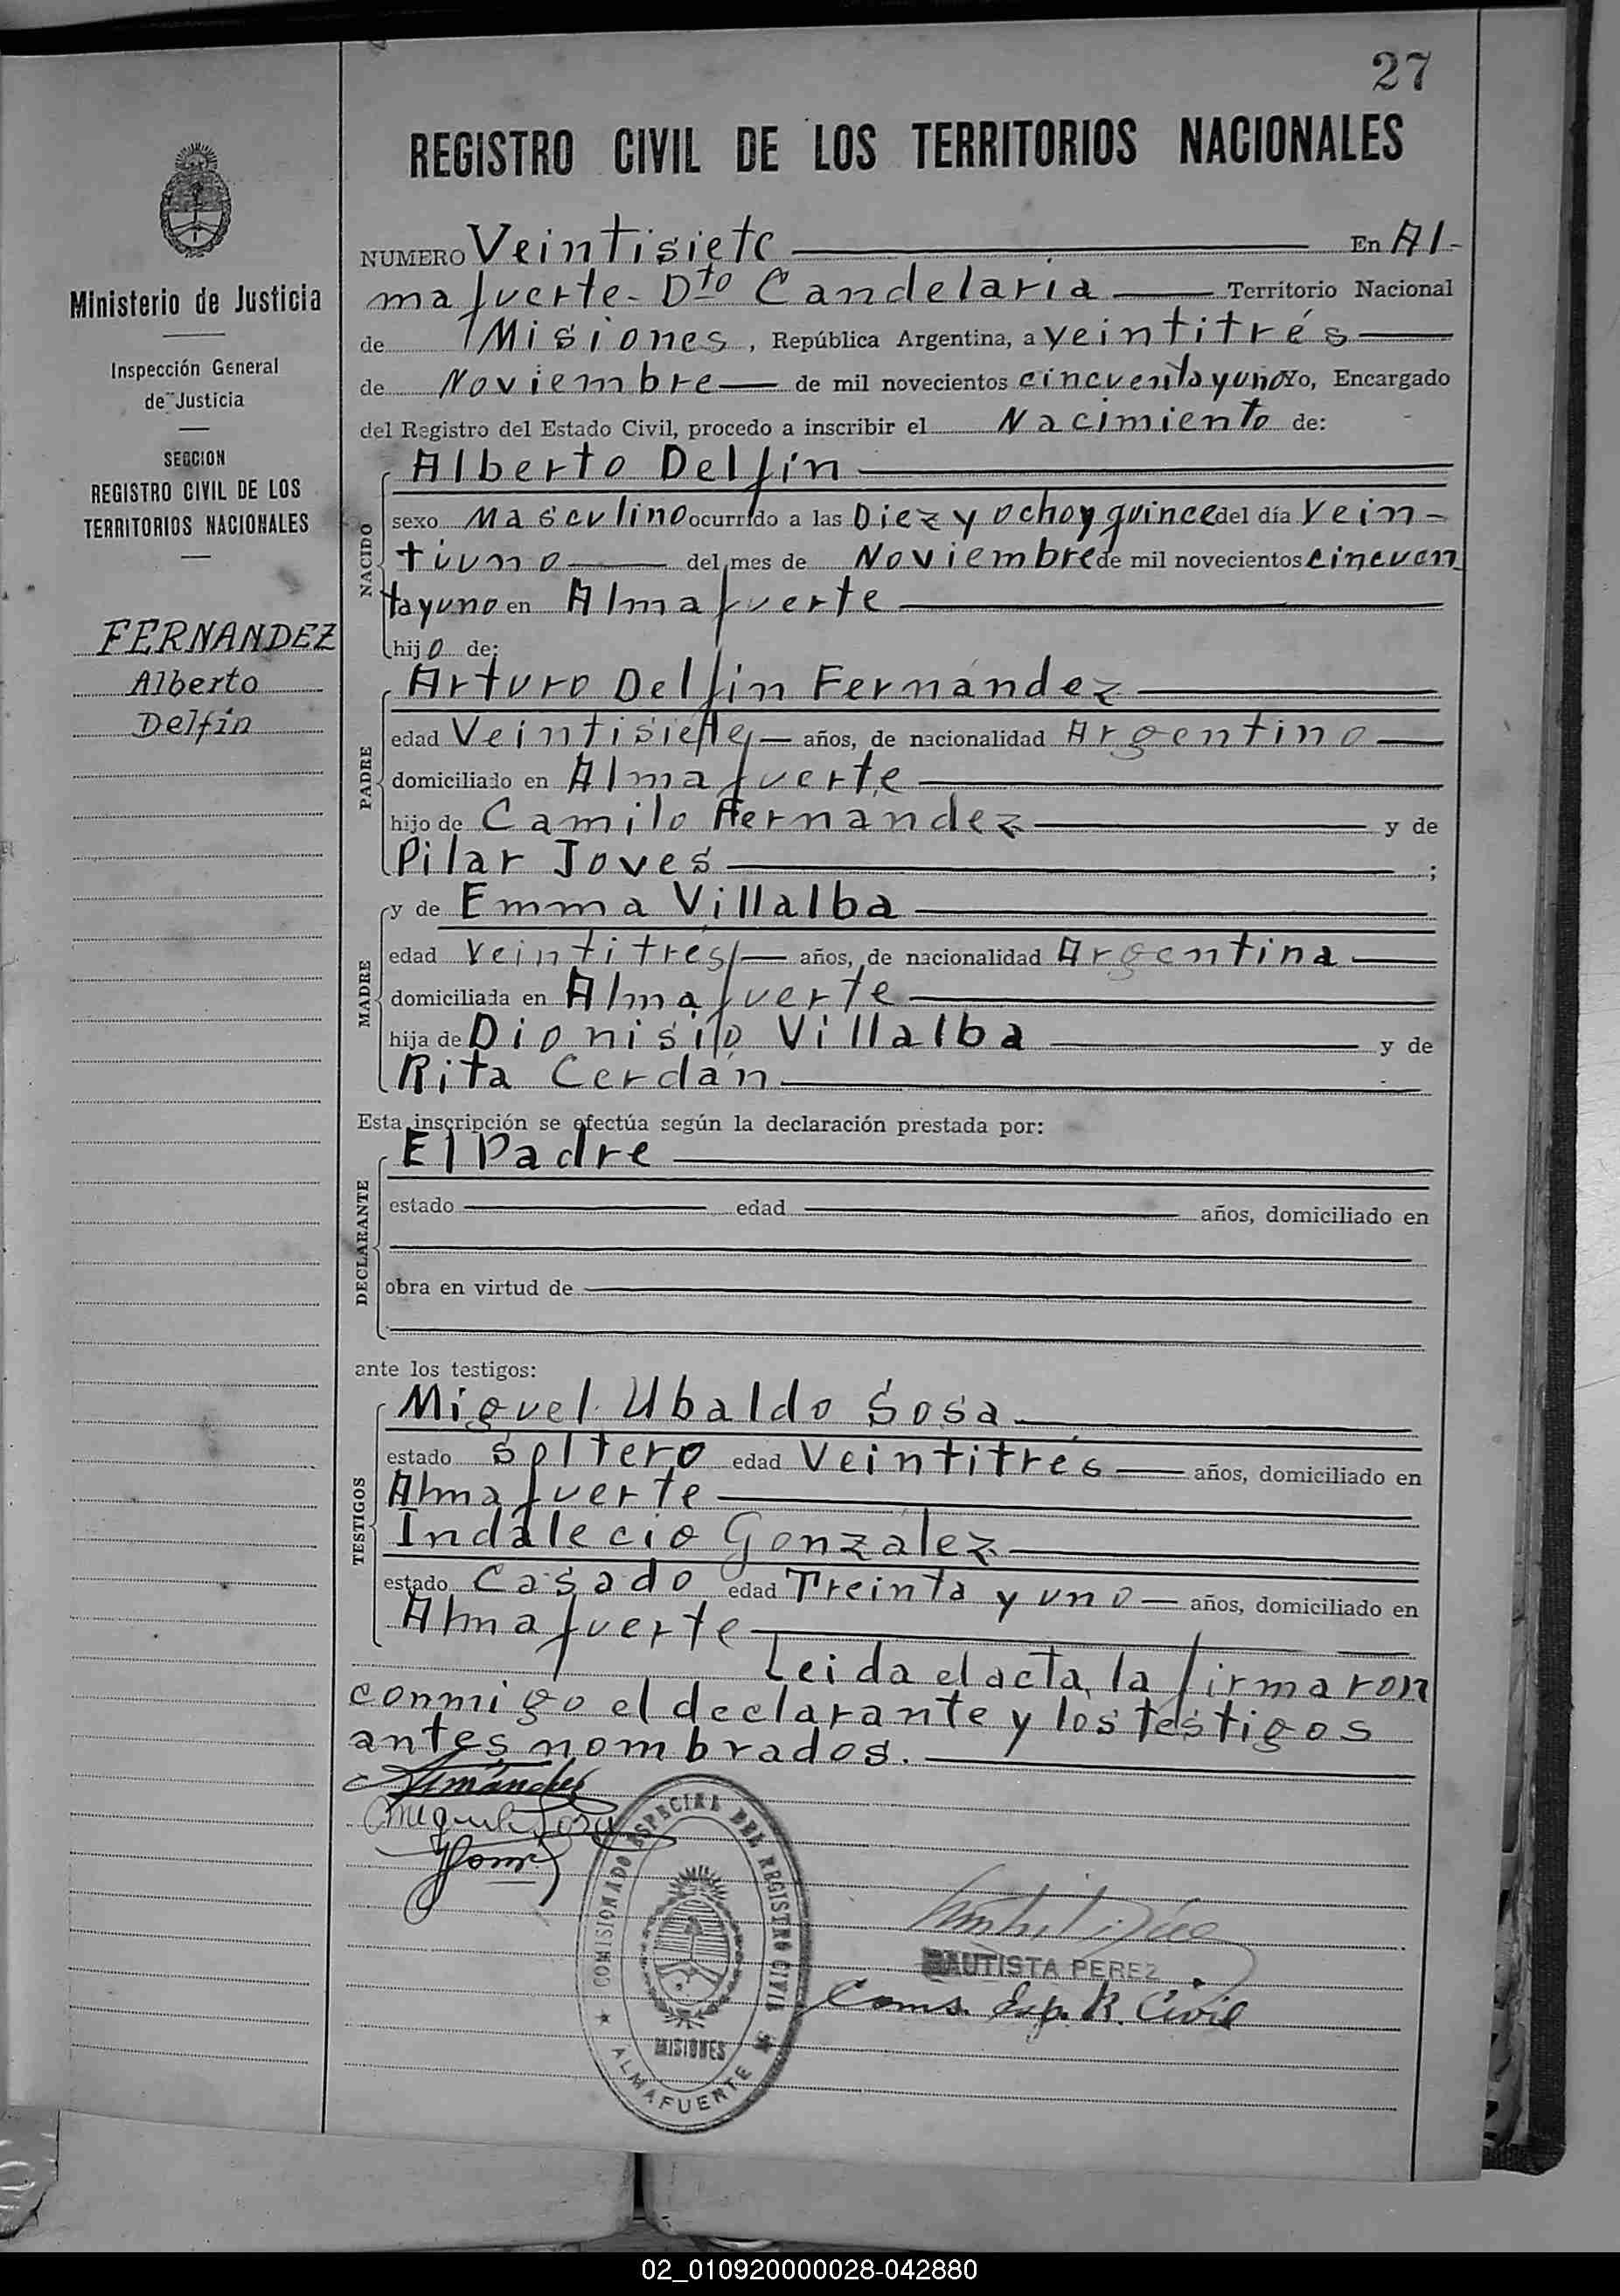 27
REGISTRO CIVIL DE LOS TERRITORIOS NACIONALES
Ministerio de Justicia
Inspección General
de Justicia
SECCION
REGISTRO CIVIL DE LOS
TERRITORIOS NACIONALES
FERNANDEZ
Alberto
Delfín
NUMERO Veintisiete En Al-
mafuerte - Dto Candelaria Territorio Nacional
de Misiones, República Argentina, a veintitrés
de Noviembre de mil novecientos cincuenta y uno Yo, Encargado
del Registro del Estado Civil, procedo a inscribir el Nacimiento de:
NACIDO
Alberto Delfín
sexo Masculino ocurrido a las Diez y ocho y quince del día Vein-
tiuno del mes de Noviembre de mil novecientos cincuen
ta y uno en Almafuerte
hijo de:
PADRE
Arturo Delfin Fernández
edad Veintisiete años, de nacionalidad Argentino
domiciliado en Almafuerte
hijo de Camilo Fernandez y de
Pilar Joves ;
MADRE
y de Emma Villalba
edad veintitrés años, de nacionalidad Argentina
domiciliada en Almafuerte
hija de Dionisio Villalba y de
Rita Cerdán
Esta inscripción se efectúa según la declaración prestada por:
DECLARANTE
El Padre
estado edad años, domiciliado en
obra en virtud de
ante los testigos:
TESTIGOS
Miguel Ubaldo Sosa
estado soltero edad Veintitrés años, domiciliado en
Almafuerte
Indalecio González
estado Casado edad Treinta y uno años, domiciliado en
Almafuerte
Leida el acta, la firmaron
conmigo el declarante y los testigos
antes nombrados.
COMISIONADO ESPECIAL DEL REGISTRO CIVIL
MISIONES
ALMAFUERTE
BAUTISTA PEREZ
Coms. Esp. R. Civil
02_010920000028-042880